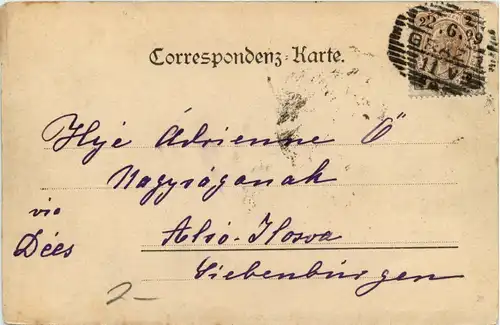 22.6.99
GRAZ
11 V
Correspondenz-Karte.
Ilyé Adrienne Ő
Nagyságának
via
Dées
Alsó-Ilosva
Siebenbürgen
2-